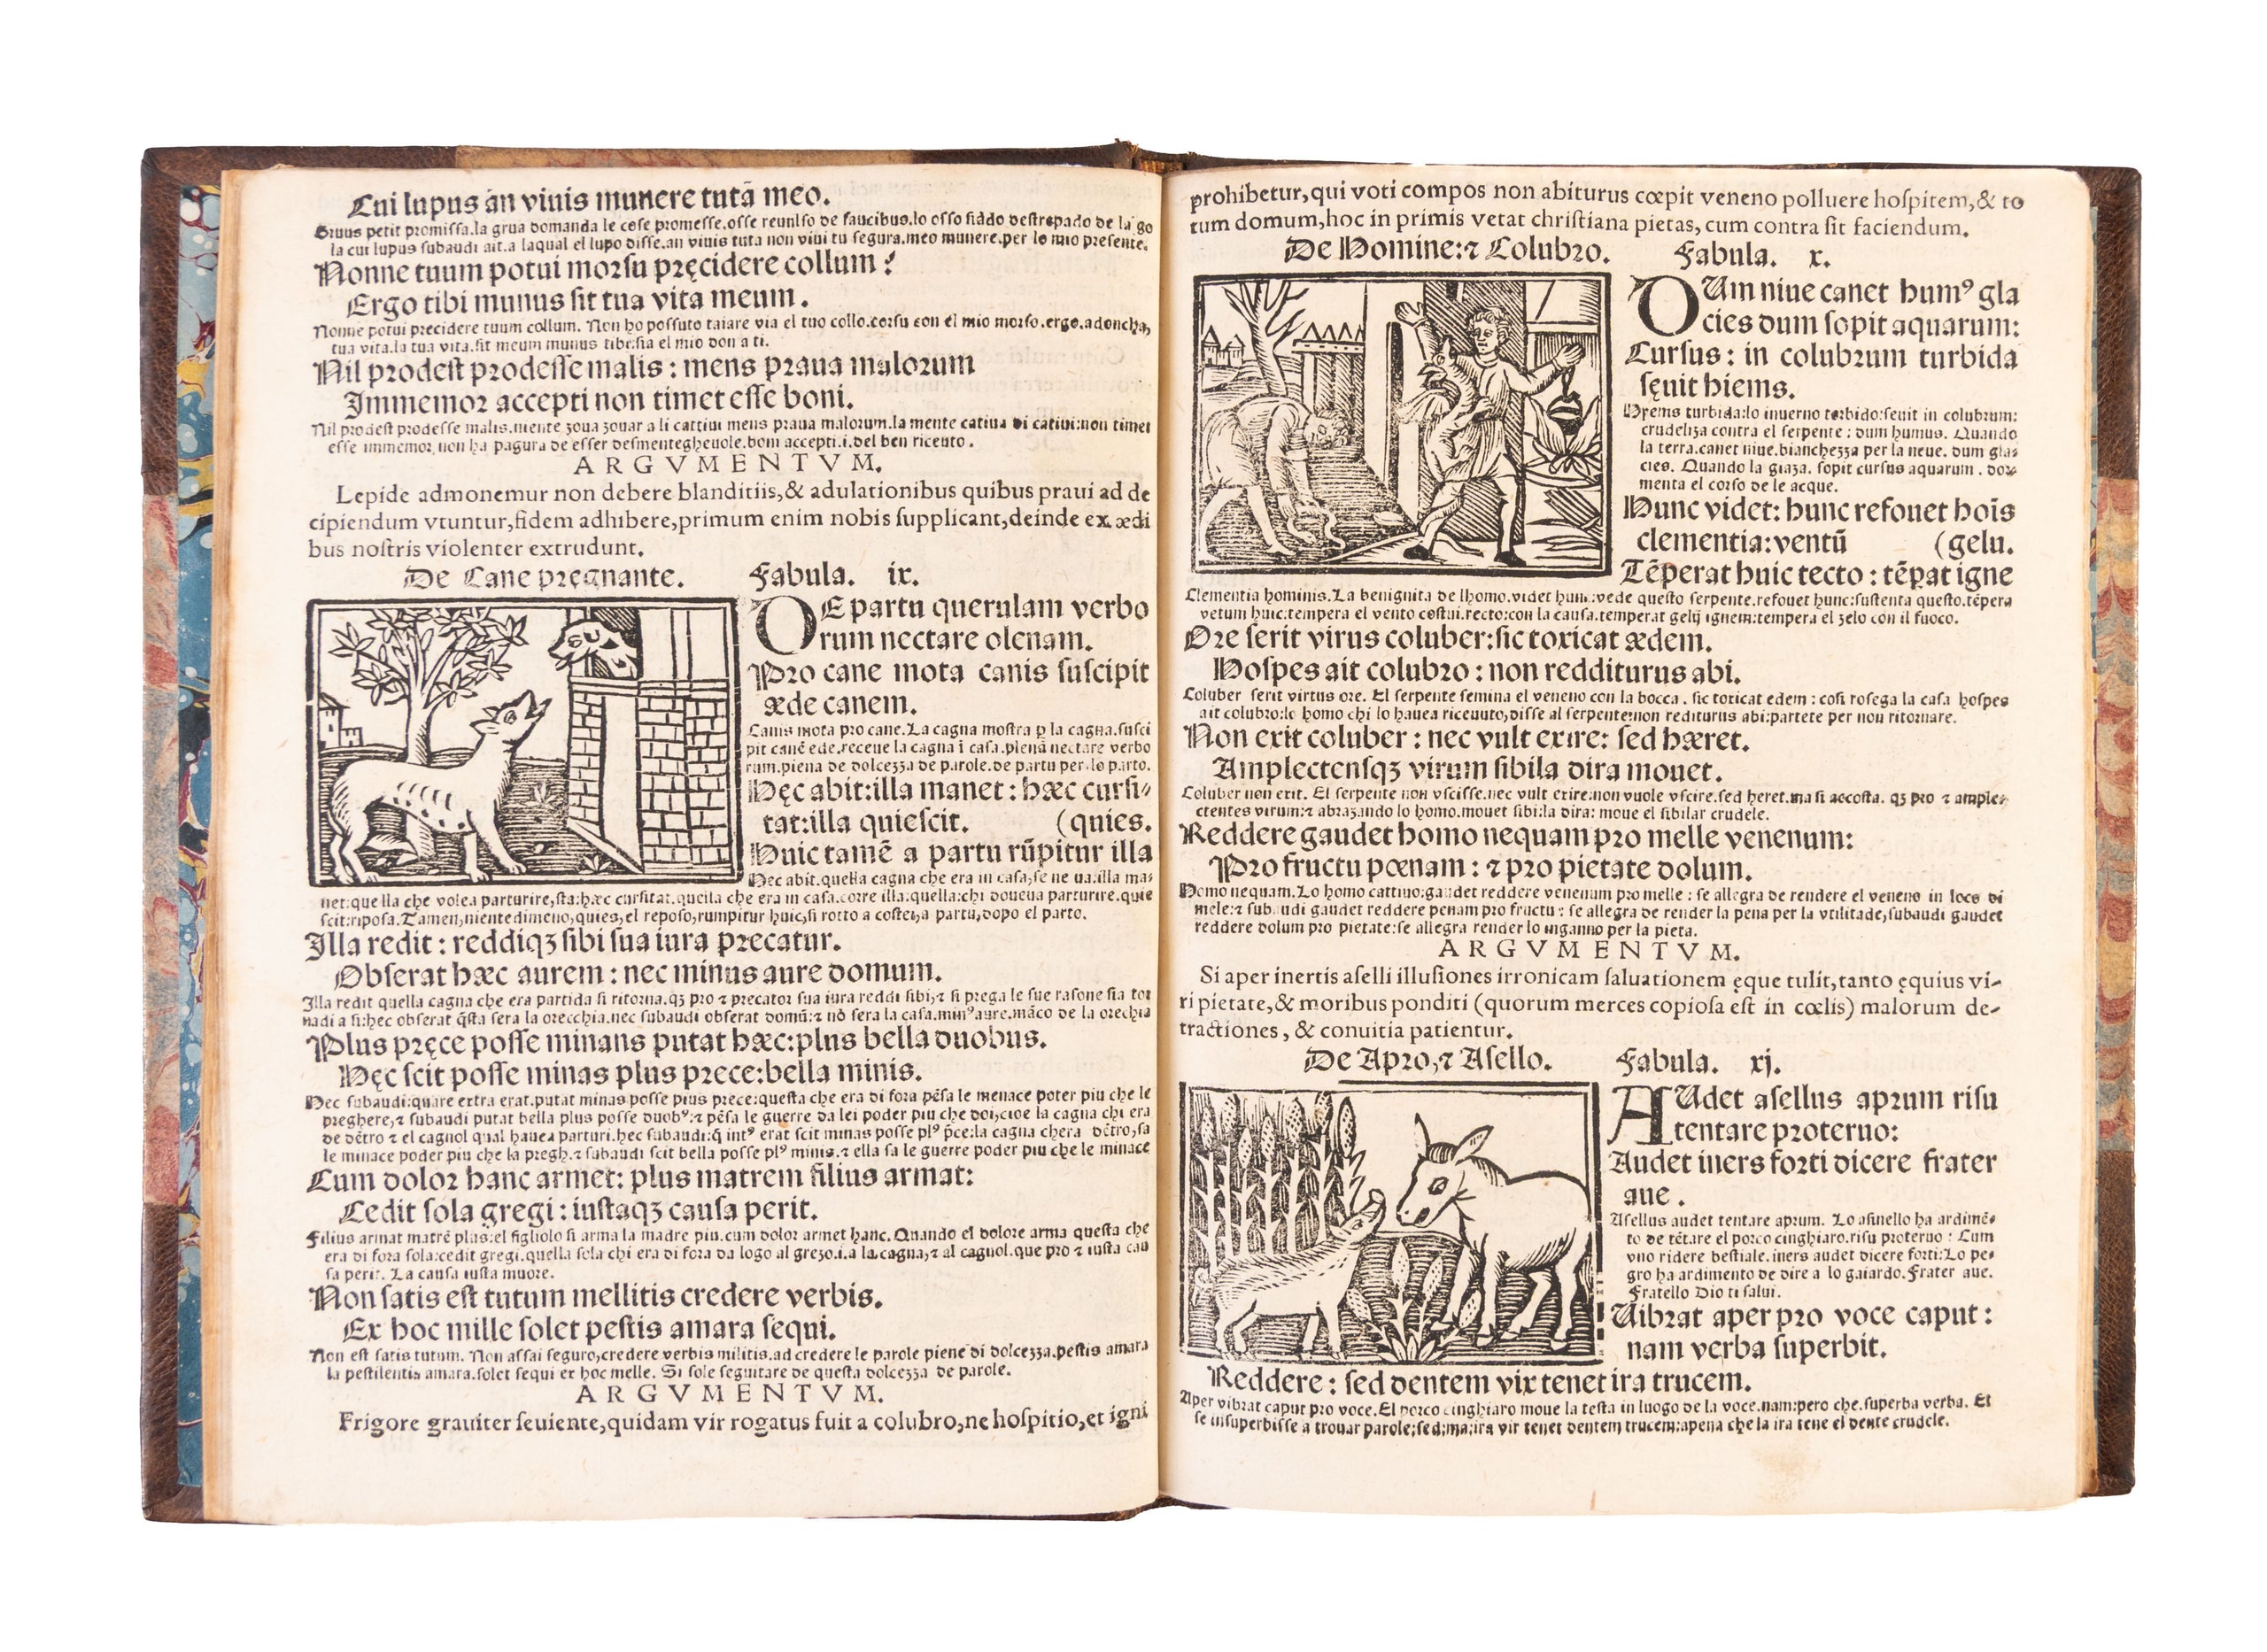 Cui lupus an viuis munere tutã meo.
Gruus petit promissa.la grua domanda le cose promesse.osse reuulso de faucibus.lo osso siãdo destrepado de la go
la cui lupus subaudi ait.a laqual el lupo disse.an viuis tuta non viui tu segura.meo munere.per lo mio presente.
Nonne tuum potui morsu pręcidere collum?
Ergo tibi munus sit tua vita meum.
Nonne potui precidere tuum collum. Non ho possuto taiare via el tuo collo.corsu con el mio morso.ergo.adoncha,
tua vita.la tua vita.sit meum munus tibi:sia el mio don a ti.
Nil prodest prodesse malis: mens praua malorum
Immemor accepti non timet esse boni.
Nil prodest prodesse malis.niente zoua zouar a li cattiui mens praua malorum.la mente catiua di catiui:non timet
esse immemor non ha pagura de esser desmentegheuole.boni accepti.i.del ben riceuto.
ARGVMENTVM.
Lepide admonemur non debere blanditiis,& adulationibus quibus praui ad de
cipiendum vtuntur,fidem adhibere,primum enim nobis supplicant,deinde ex ædi
bus nostris violenter extrudunt.
De Cane pręgnante. Fabula. ix.
DE partu querulam verbo
rum nectare olenam.
Pro cane mota canis suscipit
æde canem.
Canis mota pro cane.La cagna mostra p la cagna.susci
pit canẽ ede.receue la cagna ĩ casa.plenã nectare verbo
rum.piena de dolcezza de parole.de partu per lo parto.
Hęc abit:illa manet: hæc cursi-
tat:illa quiescit. (quies.
Huic tamẽ a partu rũpitur illa
Hec abit.quella cagna che era in casa,se ne ua:illa ma-
net:quella che volea parturire,sta:hæc cursitat.quella che era in casa.corre illa:quella:chi doueua parturire.quie
scit:riposa.Tamen,nientedimeno,quies,el reposo,rumpitur huic,si rotto a costei,a partu,dopo el parto.
Illa redit: reddiqз sibi sua iura precatur.
Obserat hæc aurem: nec minus aure domum.
Illa redit quella cagna che era partida si ritorna.qз pro ⁊ precator sua iura reddi sibi,⁊ si prega le sue rasone sia tor
nadi a si:hec obserat q̃sta sera la orecchia.nec subaudi obserat domũ:⁊ nõ sera la casa.minꝰaure.mãco de la orechia
Plus pręce posse minans putat hæc:plus bella duobus.
Hęc scit posse minas plus prece:bella minis.
Hec subaudi:quare extra erat.putat minas posse pius prece:questa che era di fora pẽsa le menace poter piu che le
preghere,⁊ subaudi putat bella plus posse duobꝰ:⁊ pẽsa le guerre da lei poder piu che doi,cioe la cagna chi era
de dẽtro ⁊ el cagnol qual hauea parturi.hec subaudi:q̃ intꝰ erat scit minas posse plꝰ p̃ce:la cagna chera dẽtro,sa
le minace poder piu che la pregh.⁊ subaudi scit bella posse plꝰ minis.⁊ ella sa le guerre poder piu che le minace
Cum dolor hanc armet: plus matrem filius armat:
Cedit sola gregi: iustaqз causa perit.
Filius armat matrẽ plus:el figliolo si arma la madre piu.cum dolor armet hanc. Quando el dolore arma questa che
era di fora sola:cedit gregi.quella sola chi era di fora da logo al grezo.i.a la cagna,⁊ al cagnol.que pro ⁊ iusta cau
sa perit. La causa iusta muore.
Non satis est tutum mellitis credere verbis.
Ex hoc mille solet pestis amara sequi.
Non est satis tutum. Non assai seguro,credere verbis militis.ad credere le parole piene di dolcezza.pestis amara
la pestilentia amara.solet sequi ex hoc melle. Si sole seguitare de questa dolcezza de parole.
ARGVMENTVM.
Frigore grauiter seuiente,quidam vir rogatus fuit a colubro,ne hospitio,et igni
prohibetur,qui voti compos non abiturus cœpit veneno polluere hospitem,& to
tum domum,hoc in primis vetat christiana pietas, cum contra sit faciendum.
De Homine:⁊ Colubro. Fabula. x.
DUm niue canet humꝰ gla
cies dum sopit aquarum:
Cursus: in colubrum turbida
sęuit hiems.
Hyems turbida:lo inuerno torbido:seuit in colubrum:
crudeliza contra el serpente: dum humus. Quando
la terra.canet niue.bianchezza per la neue. dum gla-
cies. Quando la giaza. sopit cursus aquarum. dor-
menta el corso de le acque.
Hunc videt: hunc refouet hoĩs
clementia:ventũ (gelu.
Tẽperat huic tecto: tẽpat igne
Clementia hominis.La benignita de lhomo.videt hunc:vede questo serpente.refouet hunc:sustenta questo.tẽpera
vetum huic:tempera el vento costui.recto:con la causa.temperat gelij ignem:tempera el zelo con il fuoco.
Ore serit virus coluber:sic toxicat ædem.
Hospes ait colubro: non redditurus abi.
Coluber serit virtus ore. El serpente semina el veneno con la bocca. sic toxicat edem: cosi rosega la casa hospes
ait colubro:lo homo chi lo hauea riceuuto,disse al serpente:non rediturus abi:partete per non ritornare.
Non exit coluber: nec vult exire: sed hæret.
Amplectensqз virum sibila dira mouet.
Coluber non exit. El serpente non vscisse.nec vult exire:non vuole vscire.sed heret.ma si accosta. qз pro ⁊ample-
ctentes virum:⁊ abrazando lo homo.mouet sibi:la dira: moue el sibilar crudele.
Reddere gaudet homo nequam pro melle venenum:
Pro fructu pœnam: ⁊ pro pietate dolum.
Homo nequam.Lo homo cattiuo:gaudet reddere venenum pro melle: se allegra de rendere el veneno in loco di
mele:⁊ subaudi gaudet reddere penam pro fructu: se allegra de render la pena per la vtilitade,subaudi gaudet
reddere dolum pro pietate:se allegra render lo inganno per la pieta.
ARGVMENTVM.
Si aper inertis aselli illusiones irronicam saluationem ęque tulit,tanto ęquius vi-
ri pietate,& moribus ponditi (quorum merces copiosa est in cœlis) malorum de-
tractiones, & conuitia patientur.
De Apro,⁊ Asello. Fabula. xj.
AUdet asellus aprum risu
tentare proteruo:
Audet iners forti dicere frater
aue.
Asellus audet tentare aprum. Lo asinello ha ardimẽ-
to de tẽtare el porco cinghiaro.risu proteruo: Cum
vno ridere bestiale.iners audet dicere forti:Lo pe-
gro ha ardimento de dire a lo gaiardo.Frater aue.
Fratello Dio ti salui.
Uibrat aper pro voce caput:
nam verba superbit.
Reddere: sed dentem vix tenet ira trucem.
Aper vibrat caput pro voce.El porco cinghiaro moue la testa in luogo de la voce.nam:pero che.superba verba. Et
se insuperbisse a trouar parole;sed;ma;ira vir tenet dentem trucem:apena che la ira tene el dente crudele.